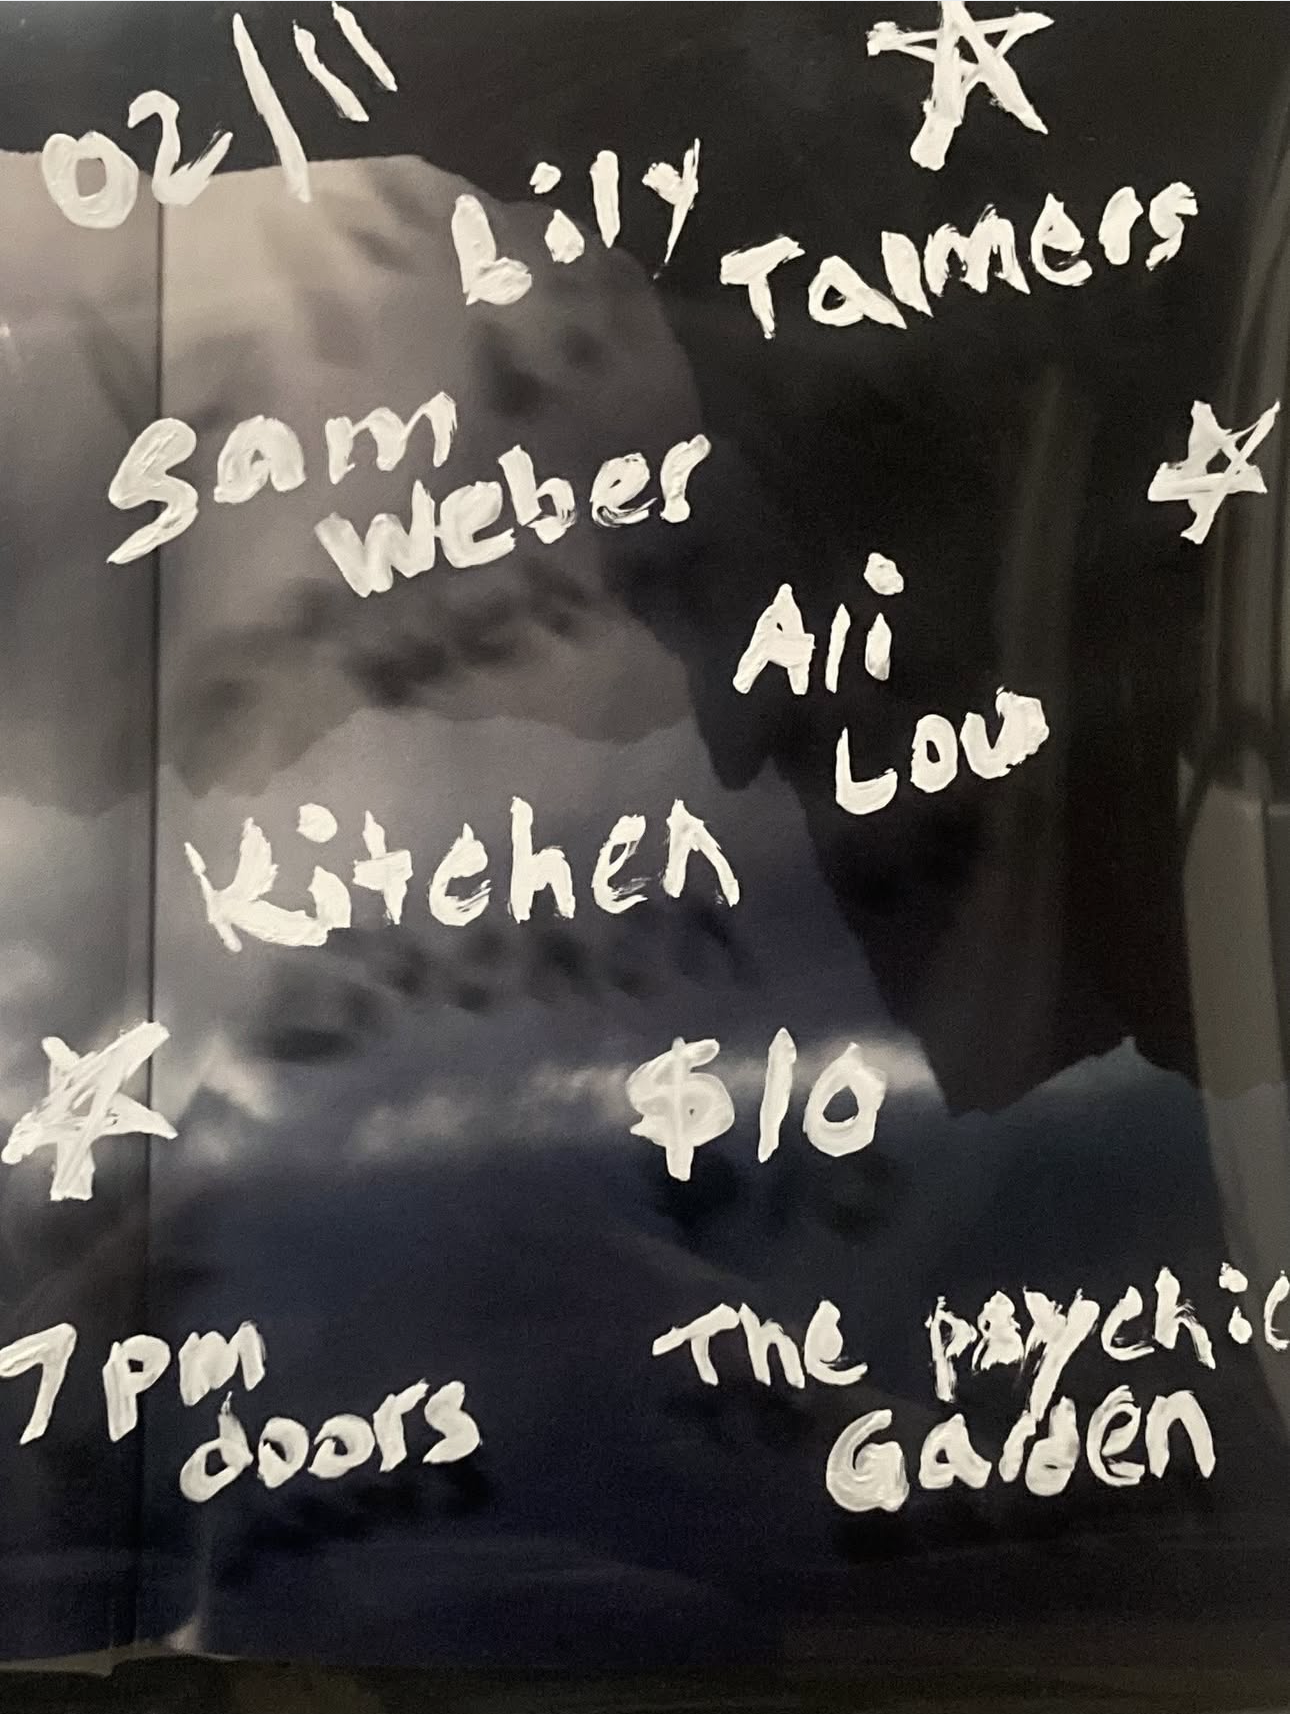 02/11
Lily
Talmers
Sam
Weber
Ali
Lou
Kitchen
$10
7pm
doors
The psychic
Garden